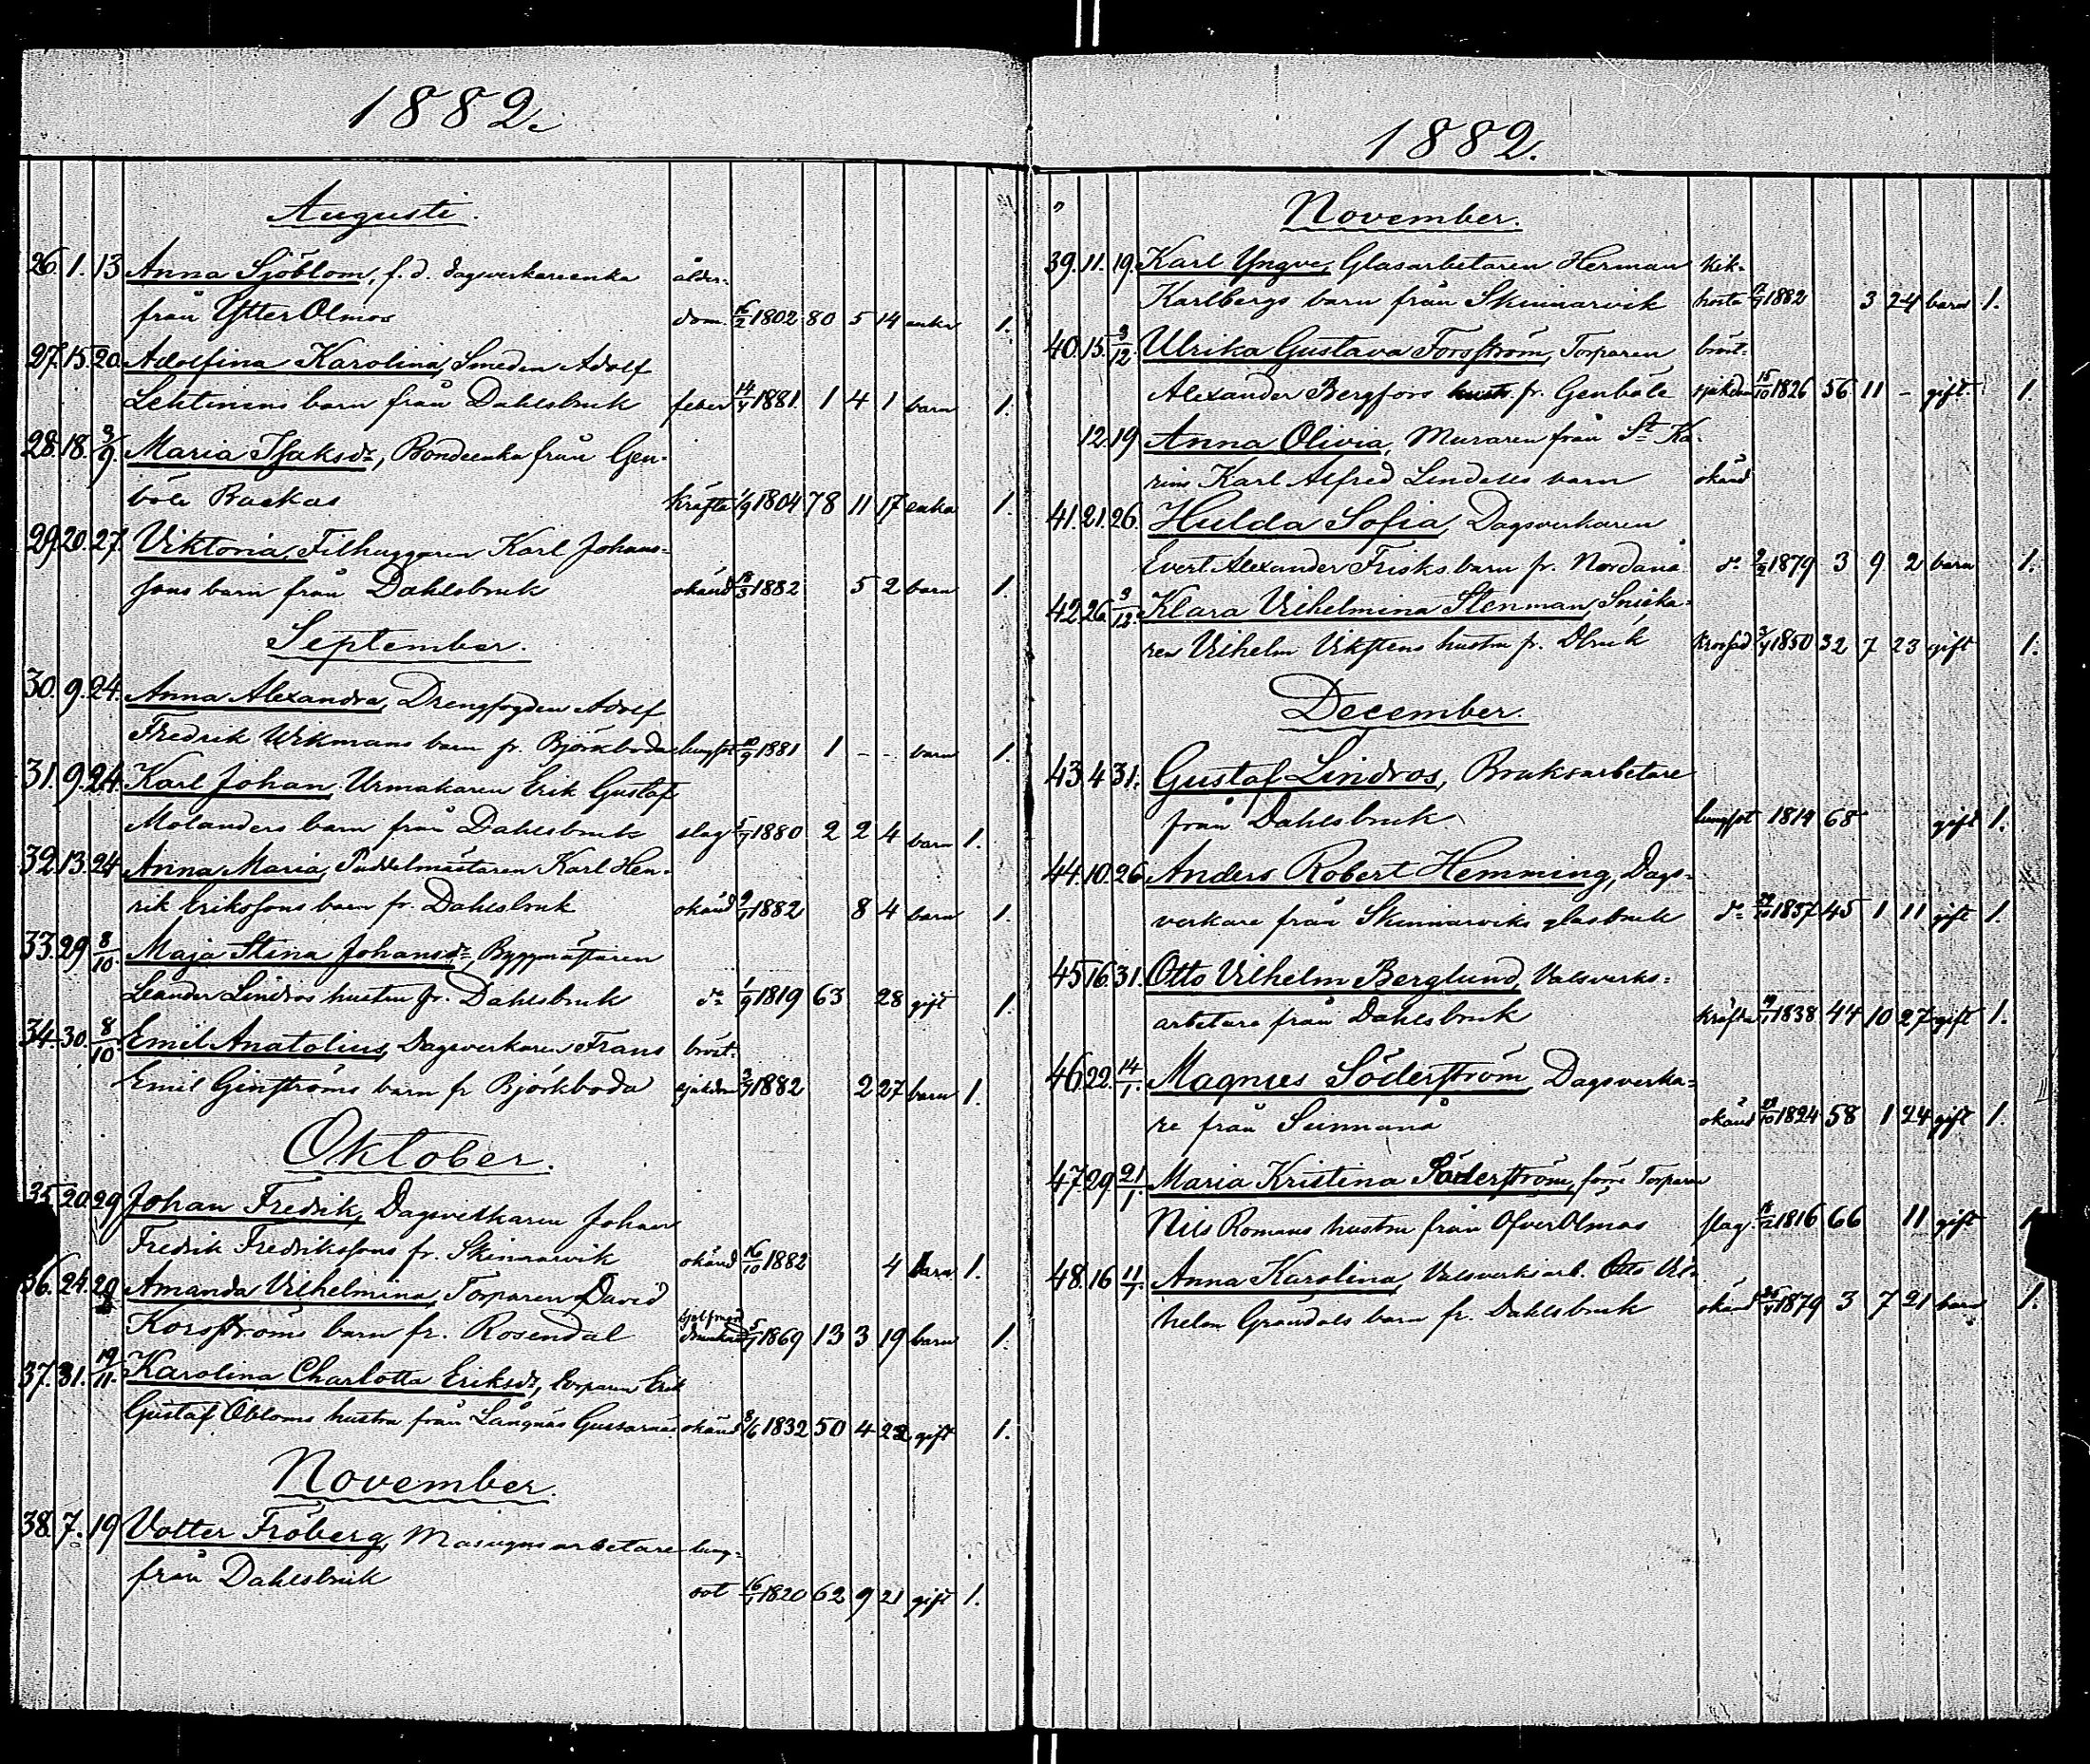 1882.
Augusti.
26. 1. 13 Anna Sjöblom, f. d. dagsverkareenka ålder-
från Ytter Olmos dom. 16/2 1802 80 5 14 enka 1.
27. 15. 20. Adolfina Karolina, Smeden Adolf
Lehtinens barn från Dahlsbruk feber 14/4 1881 1 4 1 barn 1.
28. 18. 3/9. Maria Isaksdr, Bondeenka från Gen-
böle Backas kräfta 1/9 1804 78 11 17 enka 1.
29. 20. 27. Viktoria, Filhuggaren Karl Johans-
sons barn från Dahlsbruk okänd 18/3 1882 5 2 barn 1.
September.
30. 9. 24. Anna Alexandra, Drengfogden Adolf
Fredrik Wikmans barn fr. Björkboda lungsot 10/9 1881 1 - - barn 1.
31. 9. 24. Karl Johan, Urmakaren Erik Gustaf
Molanders barn från Dahlsbruk slag 5/7 1880 2 2 4 barn 1.
32. 13. 24 Anna Maria, Puddelmästaren Karl Hen-
rik Erikssons barn fr. Dahlsbruk okänd 9/1 1882 8 4 barn 1.
33. 29 8/10. Maja Stina Johansdr, Byggmästaren
Leander Lindros hustru fr. Dahlsbruk do 1/9 1819 63 28 gift 1.
34. 30. 8/10. Emil Anatolius, Dagsverkaren Frans bröst-
Emil Ginströms barn fr Björkboda sjukdom 3/7 1882 2 27 barn 1.
Oktober.
35. 20. 29 Johan Fredrik, Dagsverkaren Johan
Fredrik Fredrikssons fr. Skinnarvik okänd 16/10 1882 4 barn 1.
36. 24. 29 Amanda Vilhelmina, Torparen David
Korsströms barn fr. Rosendal drunknad 5/7 1869 13 3 19 barn 1.
37. 31. 19/11. Karolina Charlotta Eriksdr, torparen Erik
Gustaf Öbloms hustru från Långnäs Gussarnäs okänd 8/6 1832 50 4 23 gift 1.
November.
38. 7. 19 Volter Fröberg, Masugnsarbetare lung-
från Dahlsbruk sot 16/1 1820 62 9 21 gift 1.
1882.
November.
39. 11. 19. Karl Yngve, Glasarbetaren Herman kik-
Karlbergs barn från Skinnarvik hosta 1882 3 24 barn 1.
40. 15. 3/12. Ulrika Gustava Forsström, Torparen bröst-
Alexander Bergfors hustr. fr. Genböle sjukdom 15/10 1826 56 11 - gift. 1.
12. 19 Anna Olivia, Muraren från St. Ka-
rins Karl Alfred Lindells barn okänd
41. 21. 26. Hulda Sofia, Dagsverkaren
Evert Alexander Frisks barn fr. Nordanå do 9/2 1879 3 9 2 barn 1.
42. 26. 3/12. Klara Vilhelmina Stenman, Snicka-
ren Vilhelm Vikstens hustru fr. Dbruk krossad 3/4 1850 32 7 23 gift 1.
December.
43. 4 31. Gustaf Lindros, Bruksarbetare
från Dahlsbruk lungsot 1814 68 gift 1.
44. 10. 26 Anders Robert Hemming, Dags-
verkare från Skinnarviks glasbruk do 29/10 1837 45 1 11 gift 1.
45 16. 31. Otto Vilhelm Berglund, Valsverks-
arbetare från Dahlsbruk kräfta 19/1 1838 44 10 27 gift 1.
46. 22. 14/1. Magnus Söderström, Dagsverka-
re från Sunnanå okänd 28/10 1824 58 1 24 gift 1.
47. 29 21/1. Maria Kristina Söderström, förre Torparen
Nils Romans hustru från Öfver Olmos slag. 18/12 1816 66 11 gift 1
48. 16 11/1. Anna Karolina, Valsverksarb. Otto Vil-
helm Gröndals barn fr. Dahlsbruk okänd 25/4 1879 3 7 21 barn 1.